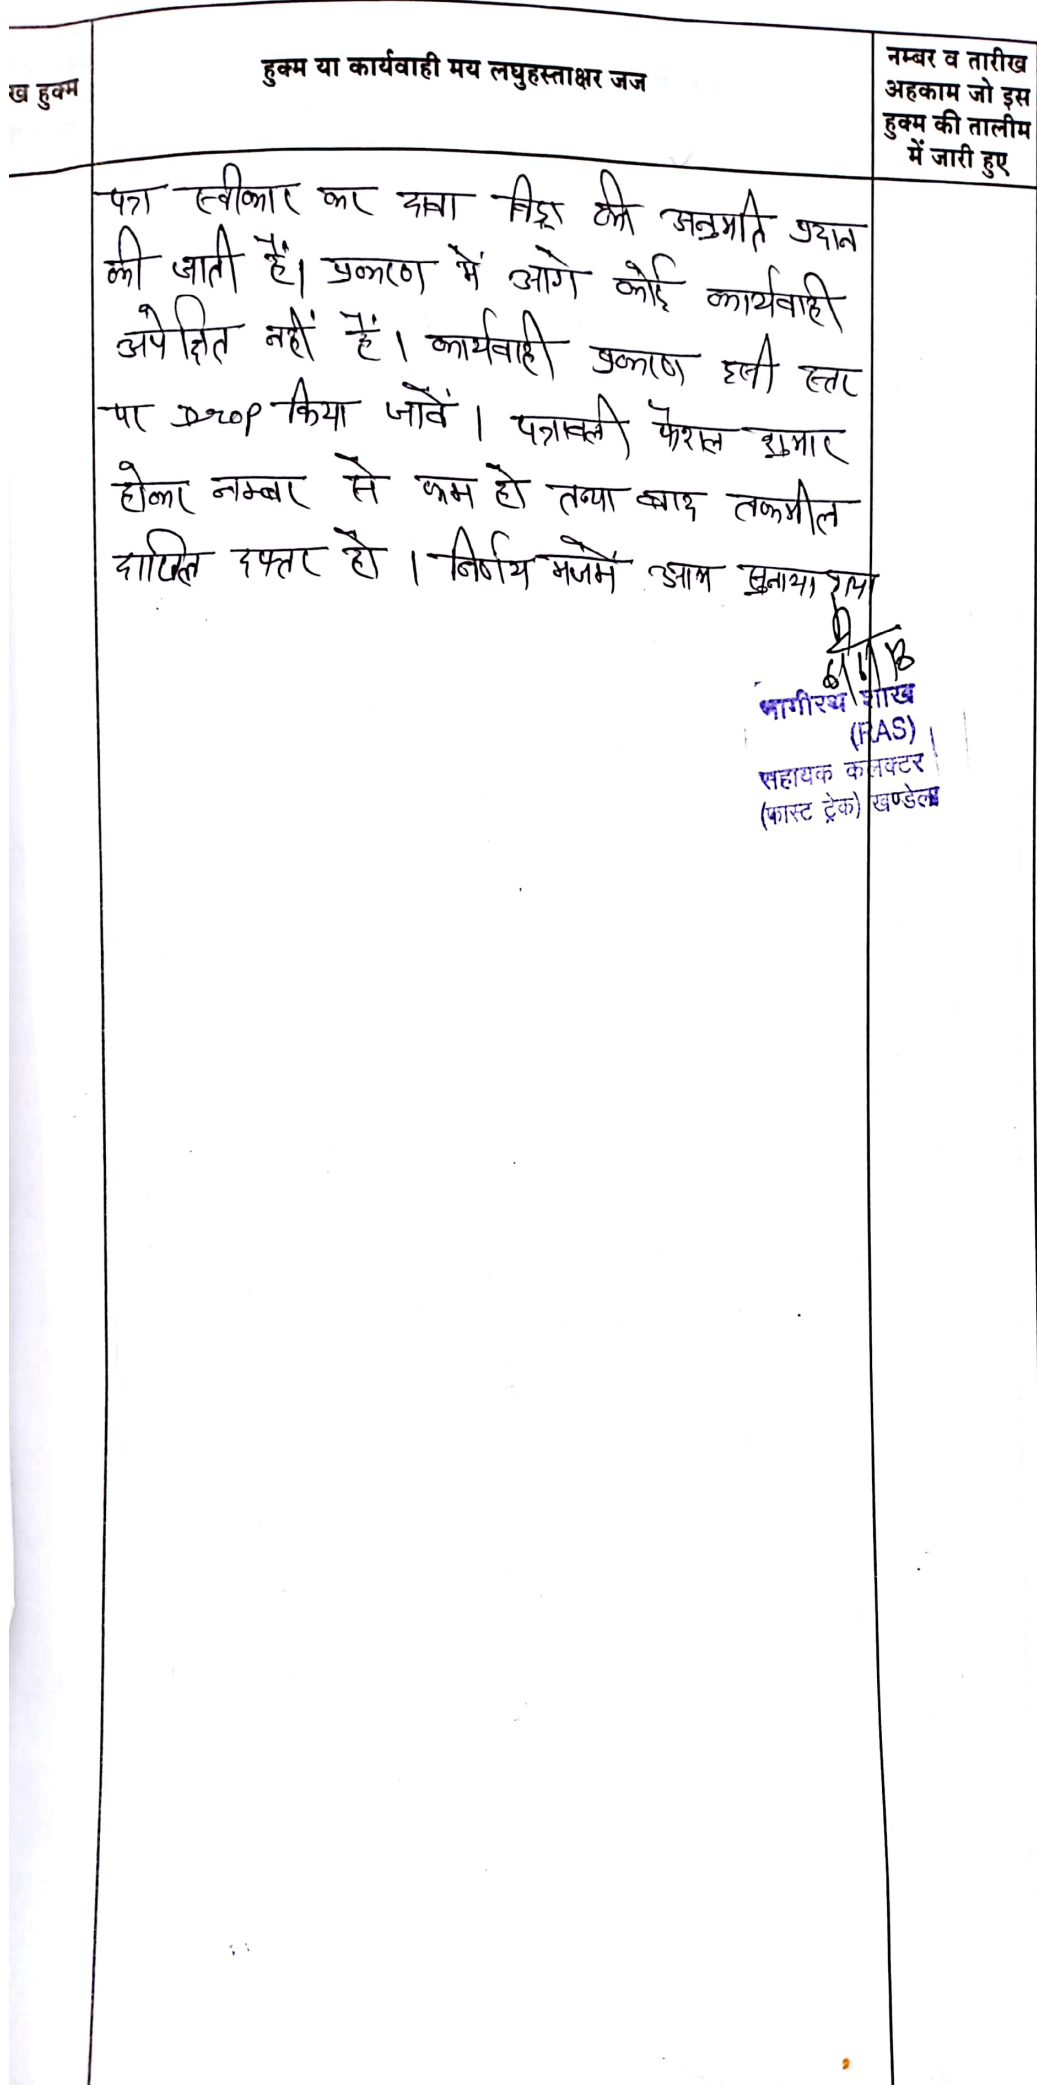 ख हुक्म
हुक्म या कार्यवाही मय लघुहस्ताक्षर जज
नम्बर व तारीख
अहकाम जो इस
हुक्म की तालीम
में जारी हुए
पत्र स्वीकार कर दावा विड्रा की अनुमति प्रदान
की जाती हैं। प्रकरण में आगे कोई कार्यवाही
अपेक्षित नहीं हैं। कार्यवाही प्रकरण इसी स्तर
पर Drop किया जावें। पत्रावली फैशल शुमार
होकर नम्बर से कम हो तथा बाद तकमील
दाखिल दफ्तर हो। निर्णय मजमें आम सुनाया गया
भागीरथ शाख
(RAS)
सहायक कलक्टर
(फास्ट ट्रेक) खण्डेला